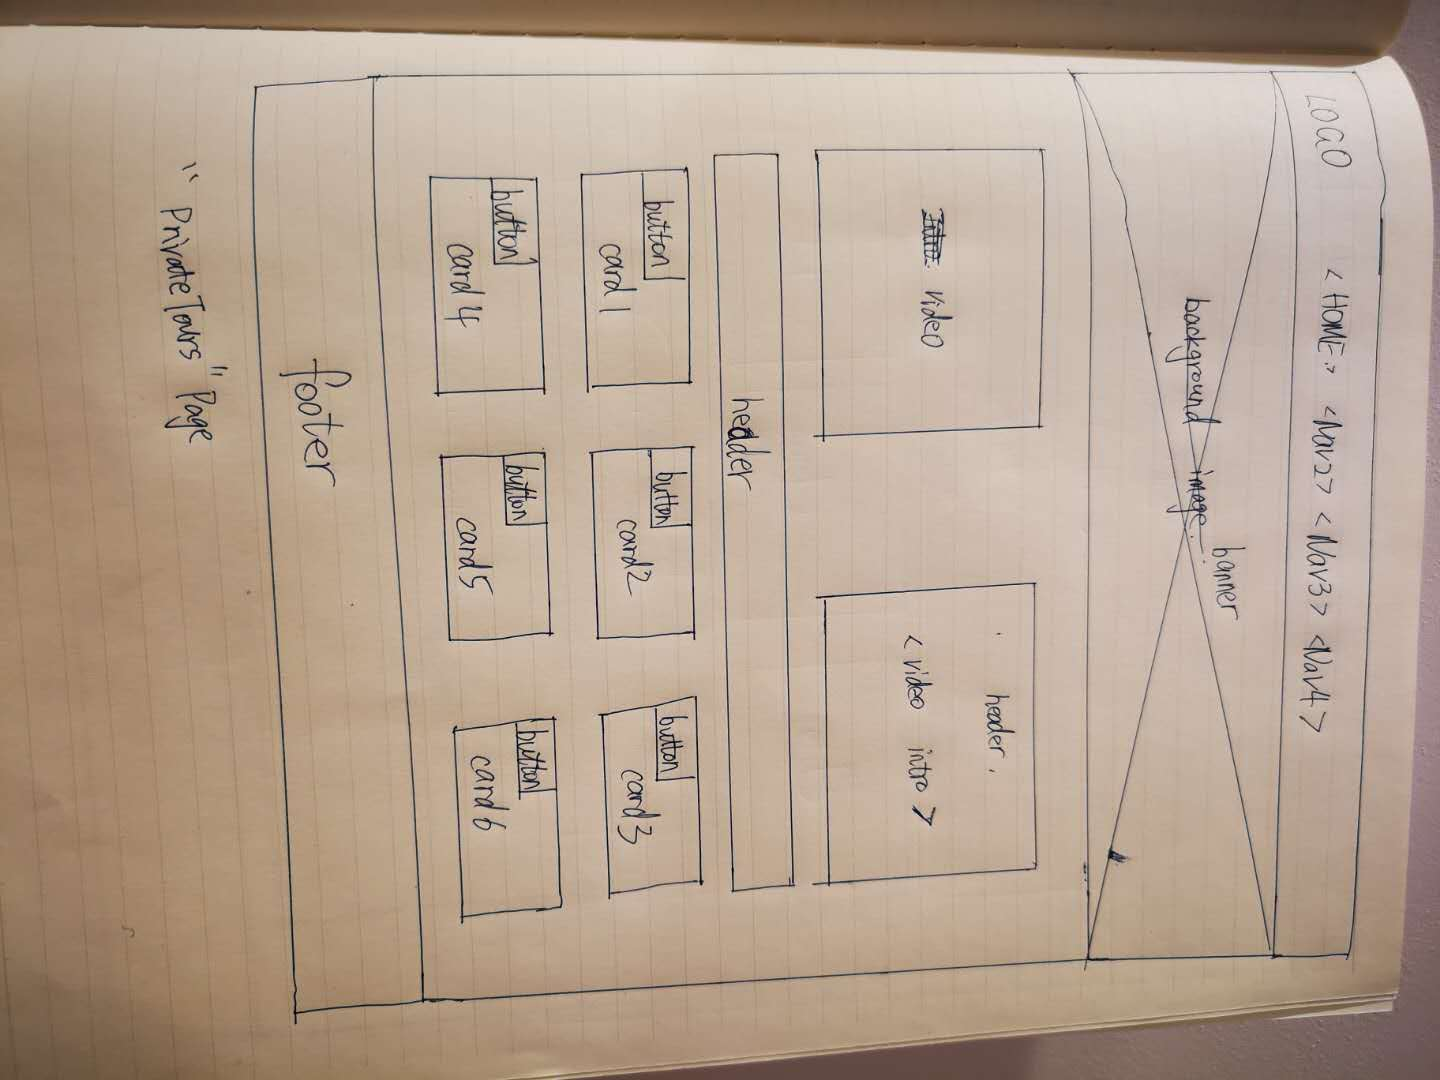 LOGO <HOME> <Nav2> <Nav3> <Nav4>
banner
background image.
header.
video
<video intro>
header
button
card 1
button
card2
button
card3
button
card 4
button
card5
button
card 6
footer
"PrivateTours" Page